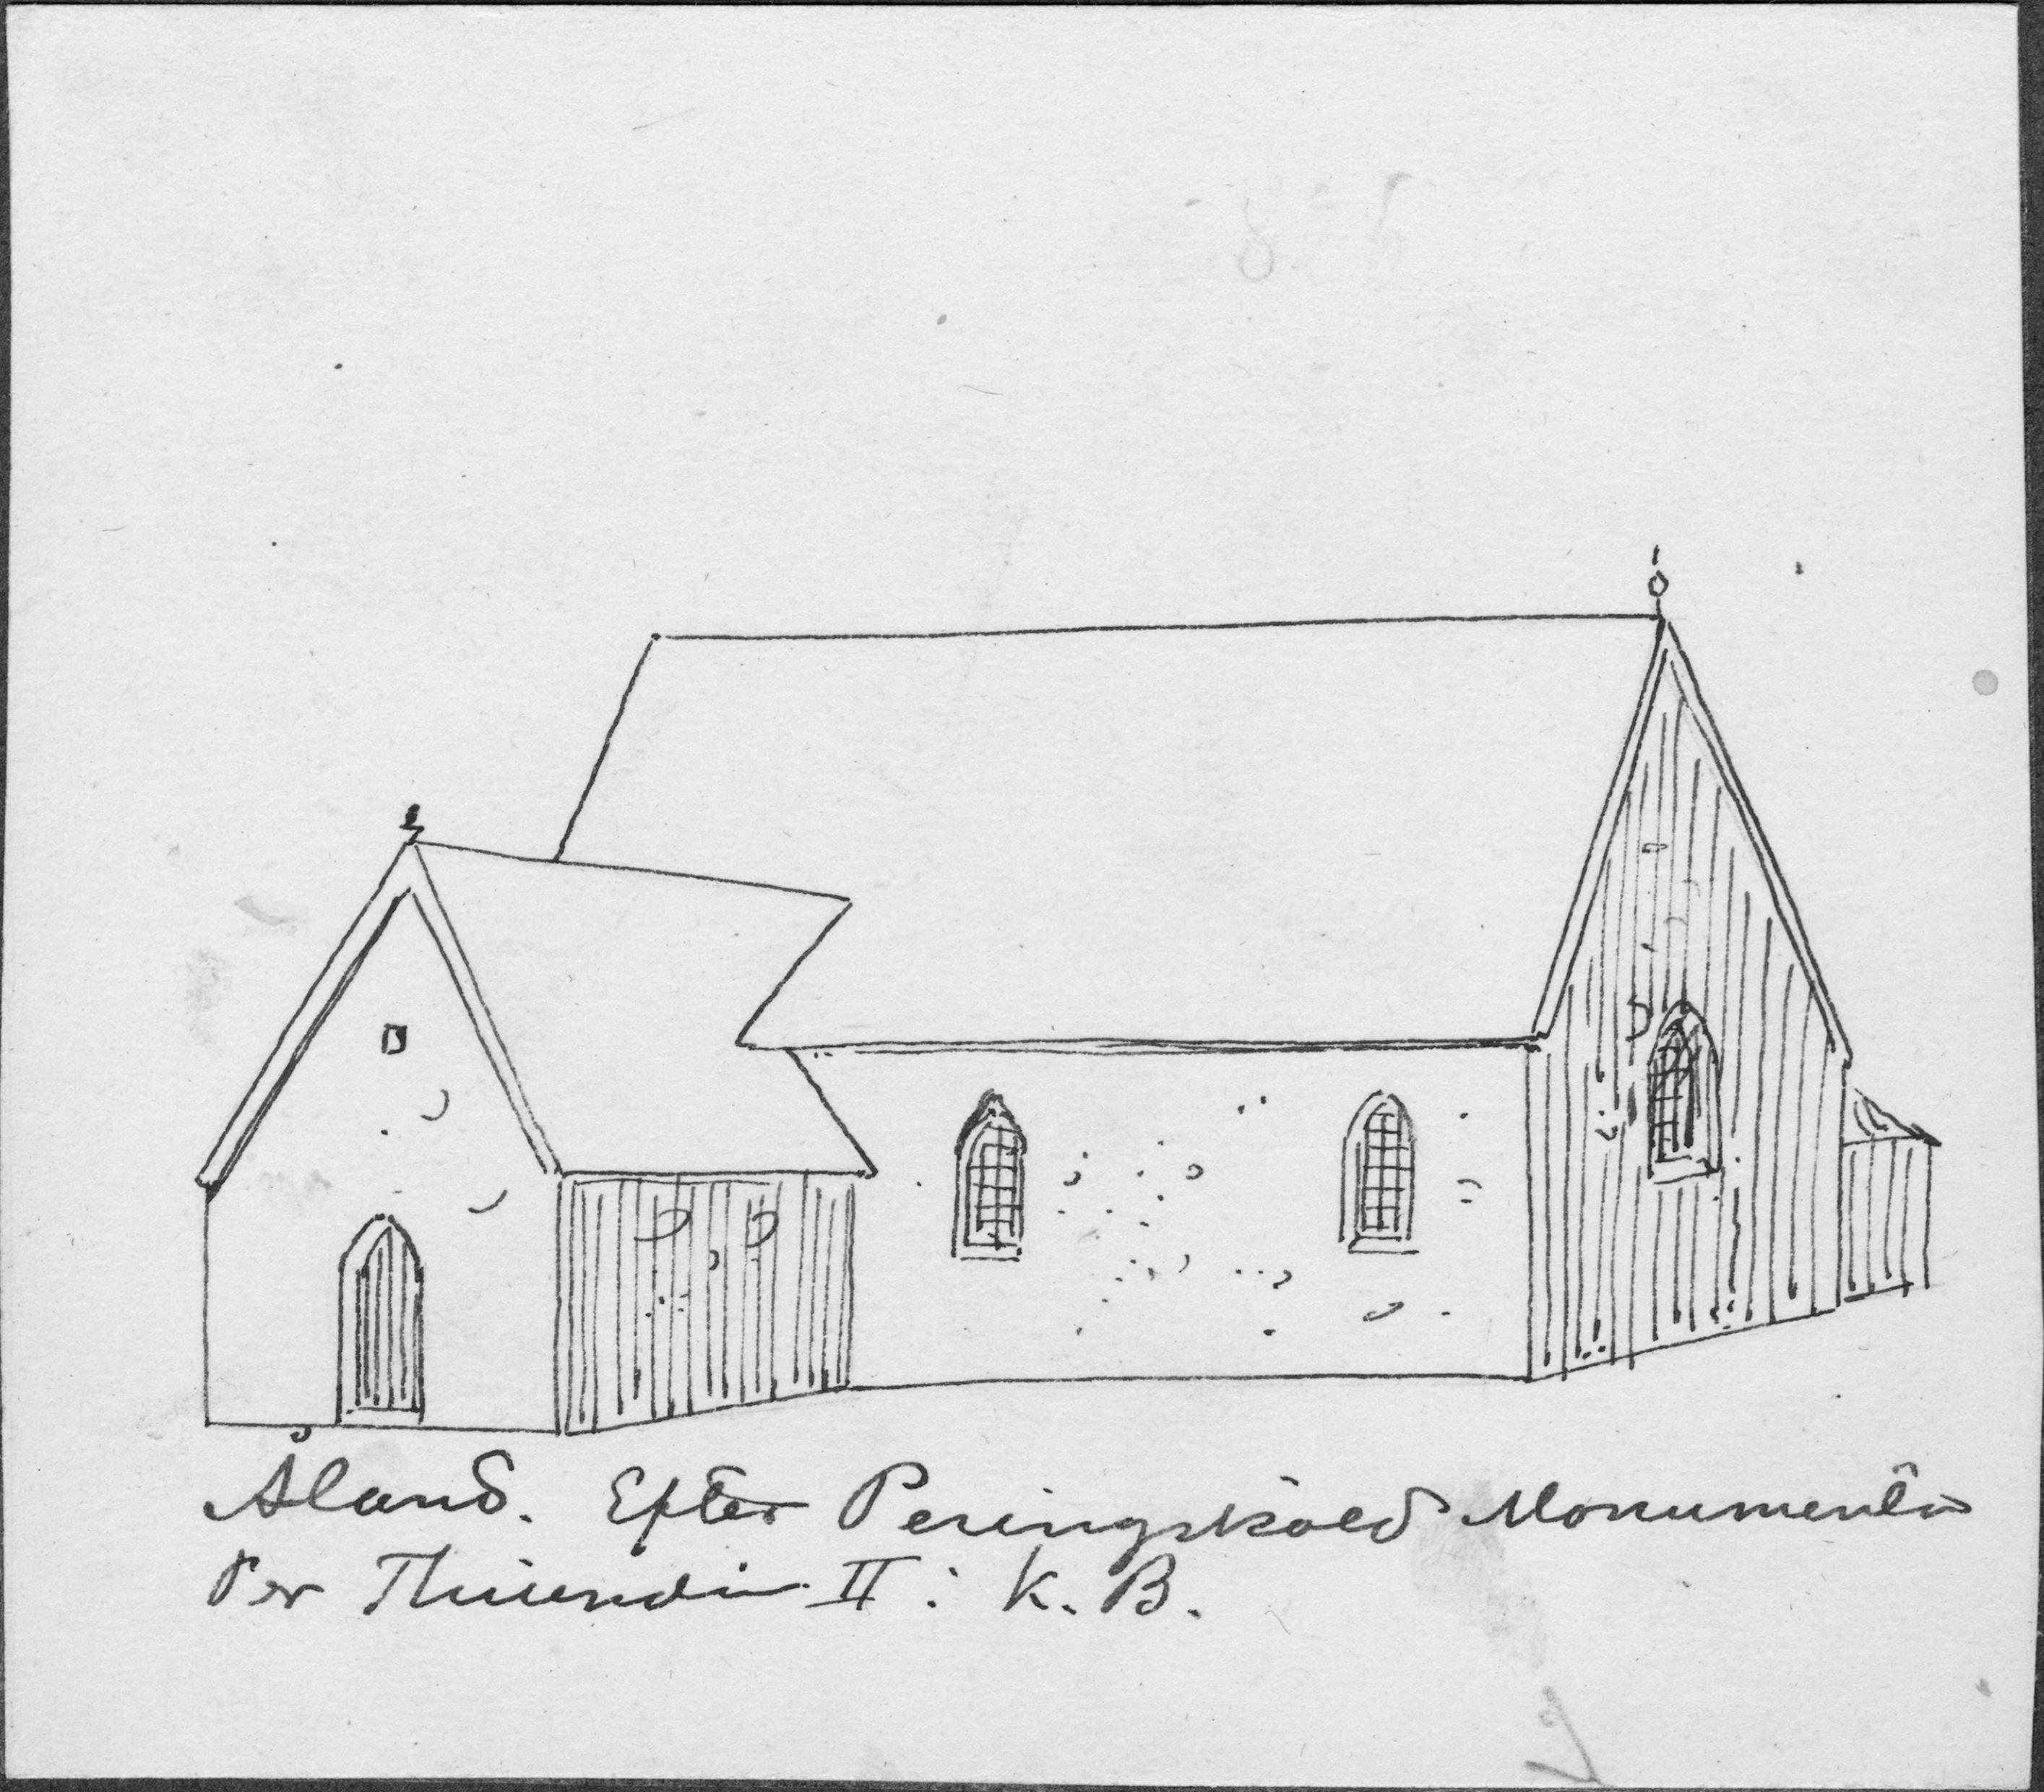 Åland. Efter Peringskiöld Monumenta
Per Thiundia II: K. B.